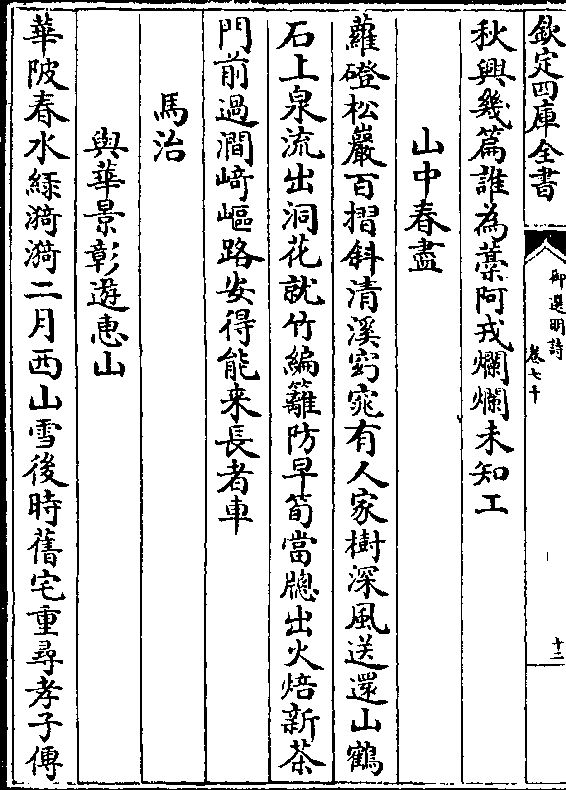 欽定四庫全書
御選明詩
卷七十
十二
秋興幾篇誰為藁阿戎爛爛未知工
山中春盡
蘿磴松巖百摺斜清溪窈窕有人家樹深風送還山鶴
石上泉流出洞花就竹編籬防早筍當牕出火焙新茶
門前過澗﨑嶇路安得能来長者車
馬治
與華景彰遊惠山
華陂春水緑漪漪二月西山雪後時舊宅重尋孝子傳